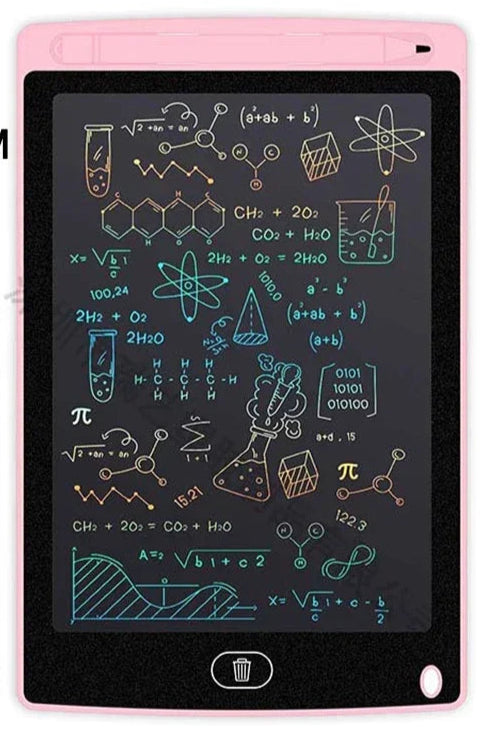 M
√2 +an = an
(a²+ab + b²)
CH₂ + 2O₂
CO₂ + H₂O
X= √b 1 / c
2H₂ + O₂ = 2H₂O
100,24
1010,0
a³ - b³
2H₂ + O₂
(a²+ab + b²)
2H₂O
(a+b)
H H H
H-C-C-C-H
H H H
0101
10101
010100
π
a+d , 15
√2 +an = an
1+1
π
15.21
122,3
CH₂ + 2O₂ = CO₂ + H₂O
A=2 √b 1 + c 2
X= √b/c 1 + c - b/2